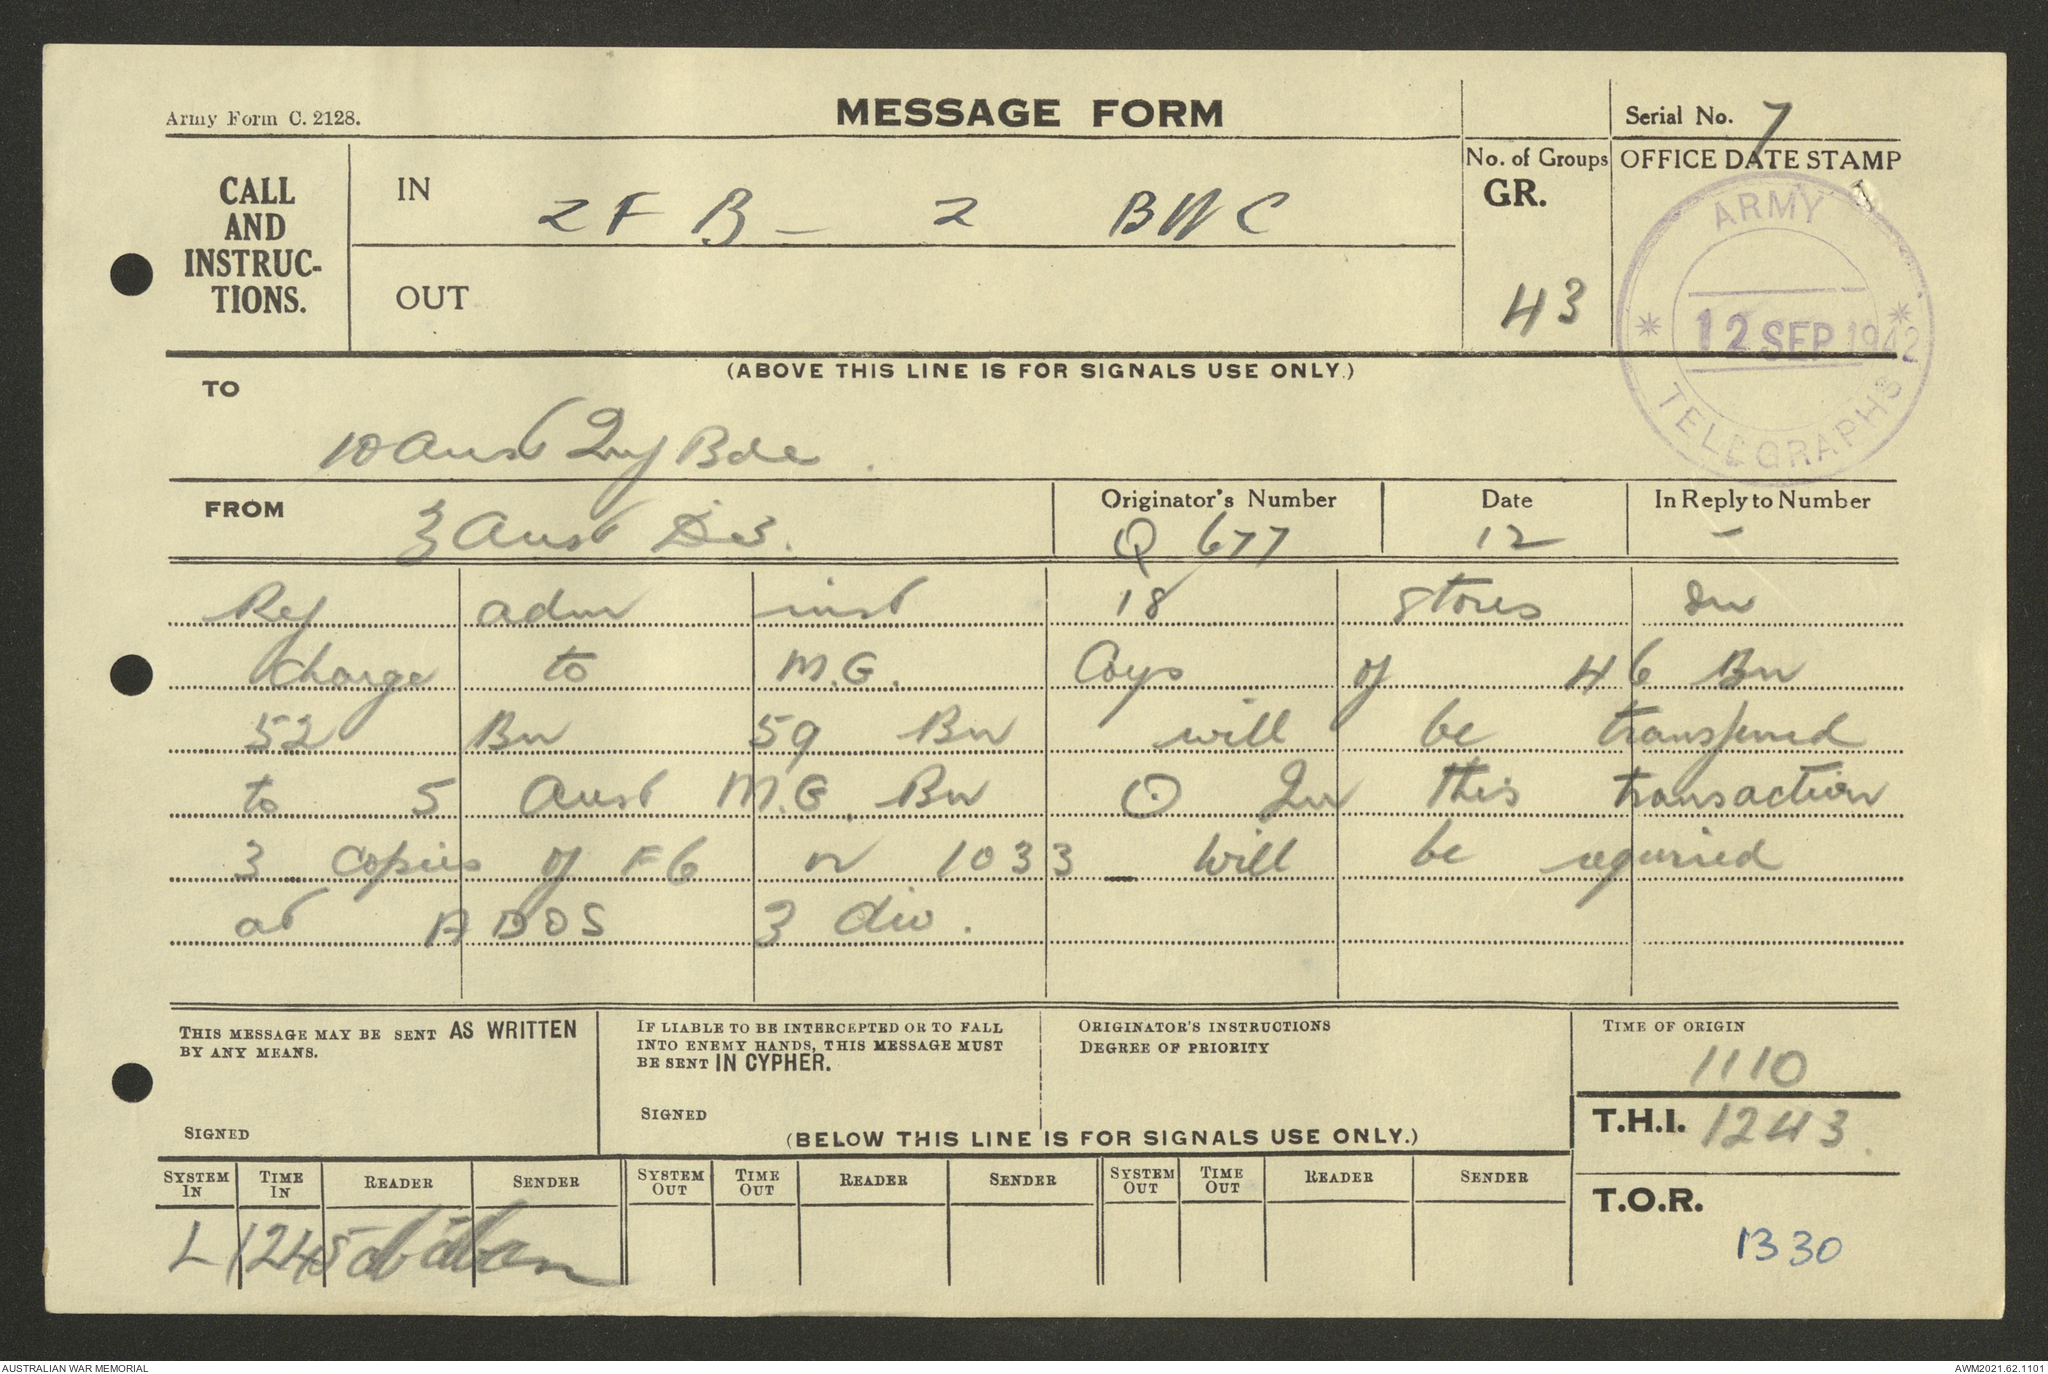 Army Form C. 2128.
MESSAGE FORM
Serial No. 7
CALL AND INSTRUC-TIONS.
IN ZFB - 2 BWC
OUT
No. of Groups GR. 43
OFFICE DATE STAMP
ARMY TELEGRAPHS
12 SEP 1942
(ABOVE THIS LINE IS FOR SIGNALS USE ONLY.)
TO
10 Aust Inf Bde.
FROM 3 Aust Div.
Originator's Number Q 677
Date 12
In Reply to Number -
Ref adm inst 18 stores on
charge to M.G. Coys of 46 Bn
52 Bn 59 Bn will be transferred
to 5 Aust M.G. Bn ⊙ In this transaction
3 copies of F6 or 1033 will be required
at ADOS 3 div.
THIS MESSAGE MAY BE SENT AS WRITTEN BY ANY MEANS.
SIGNED
IF LIABLE TO BE INTERCEPTED OR TO FALL INTO ENEMY HANDS, THIS MESSAGE MUST BE SENT IN CYPHER.
SIGNED
ORIGINATOR'S INSTRUCTIONS
DEGREE OF PRIORITY
TIME OF ORIGIN
1110
T.H.I. 1243.
(BELOW THIS LINE IS FOR SIGNALS USE ONLY.)
SYSTEM IN TIME IN READER SENDER SYSTEM OUT TIME OUT READER SENDER SYSTEM OUT TIME OUT READER SENDER
L 1245
T.O.R.
1330
AUSTRALIAN WAR MEMORIAL
AWM2021.62.1101